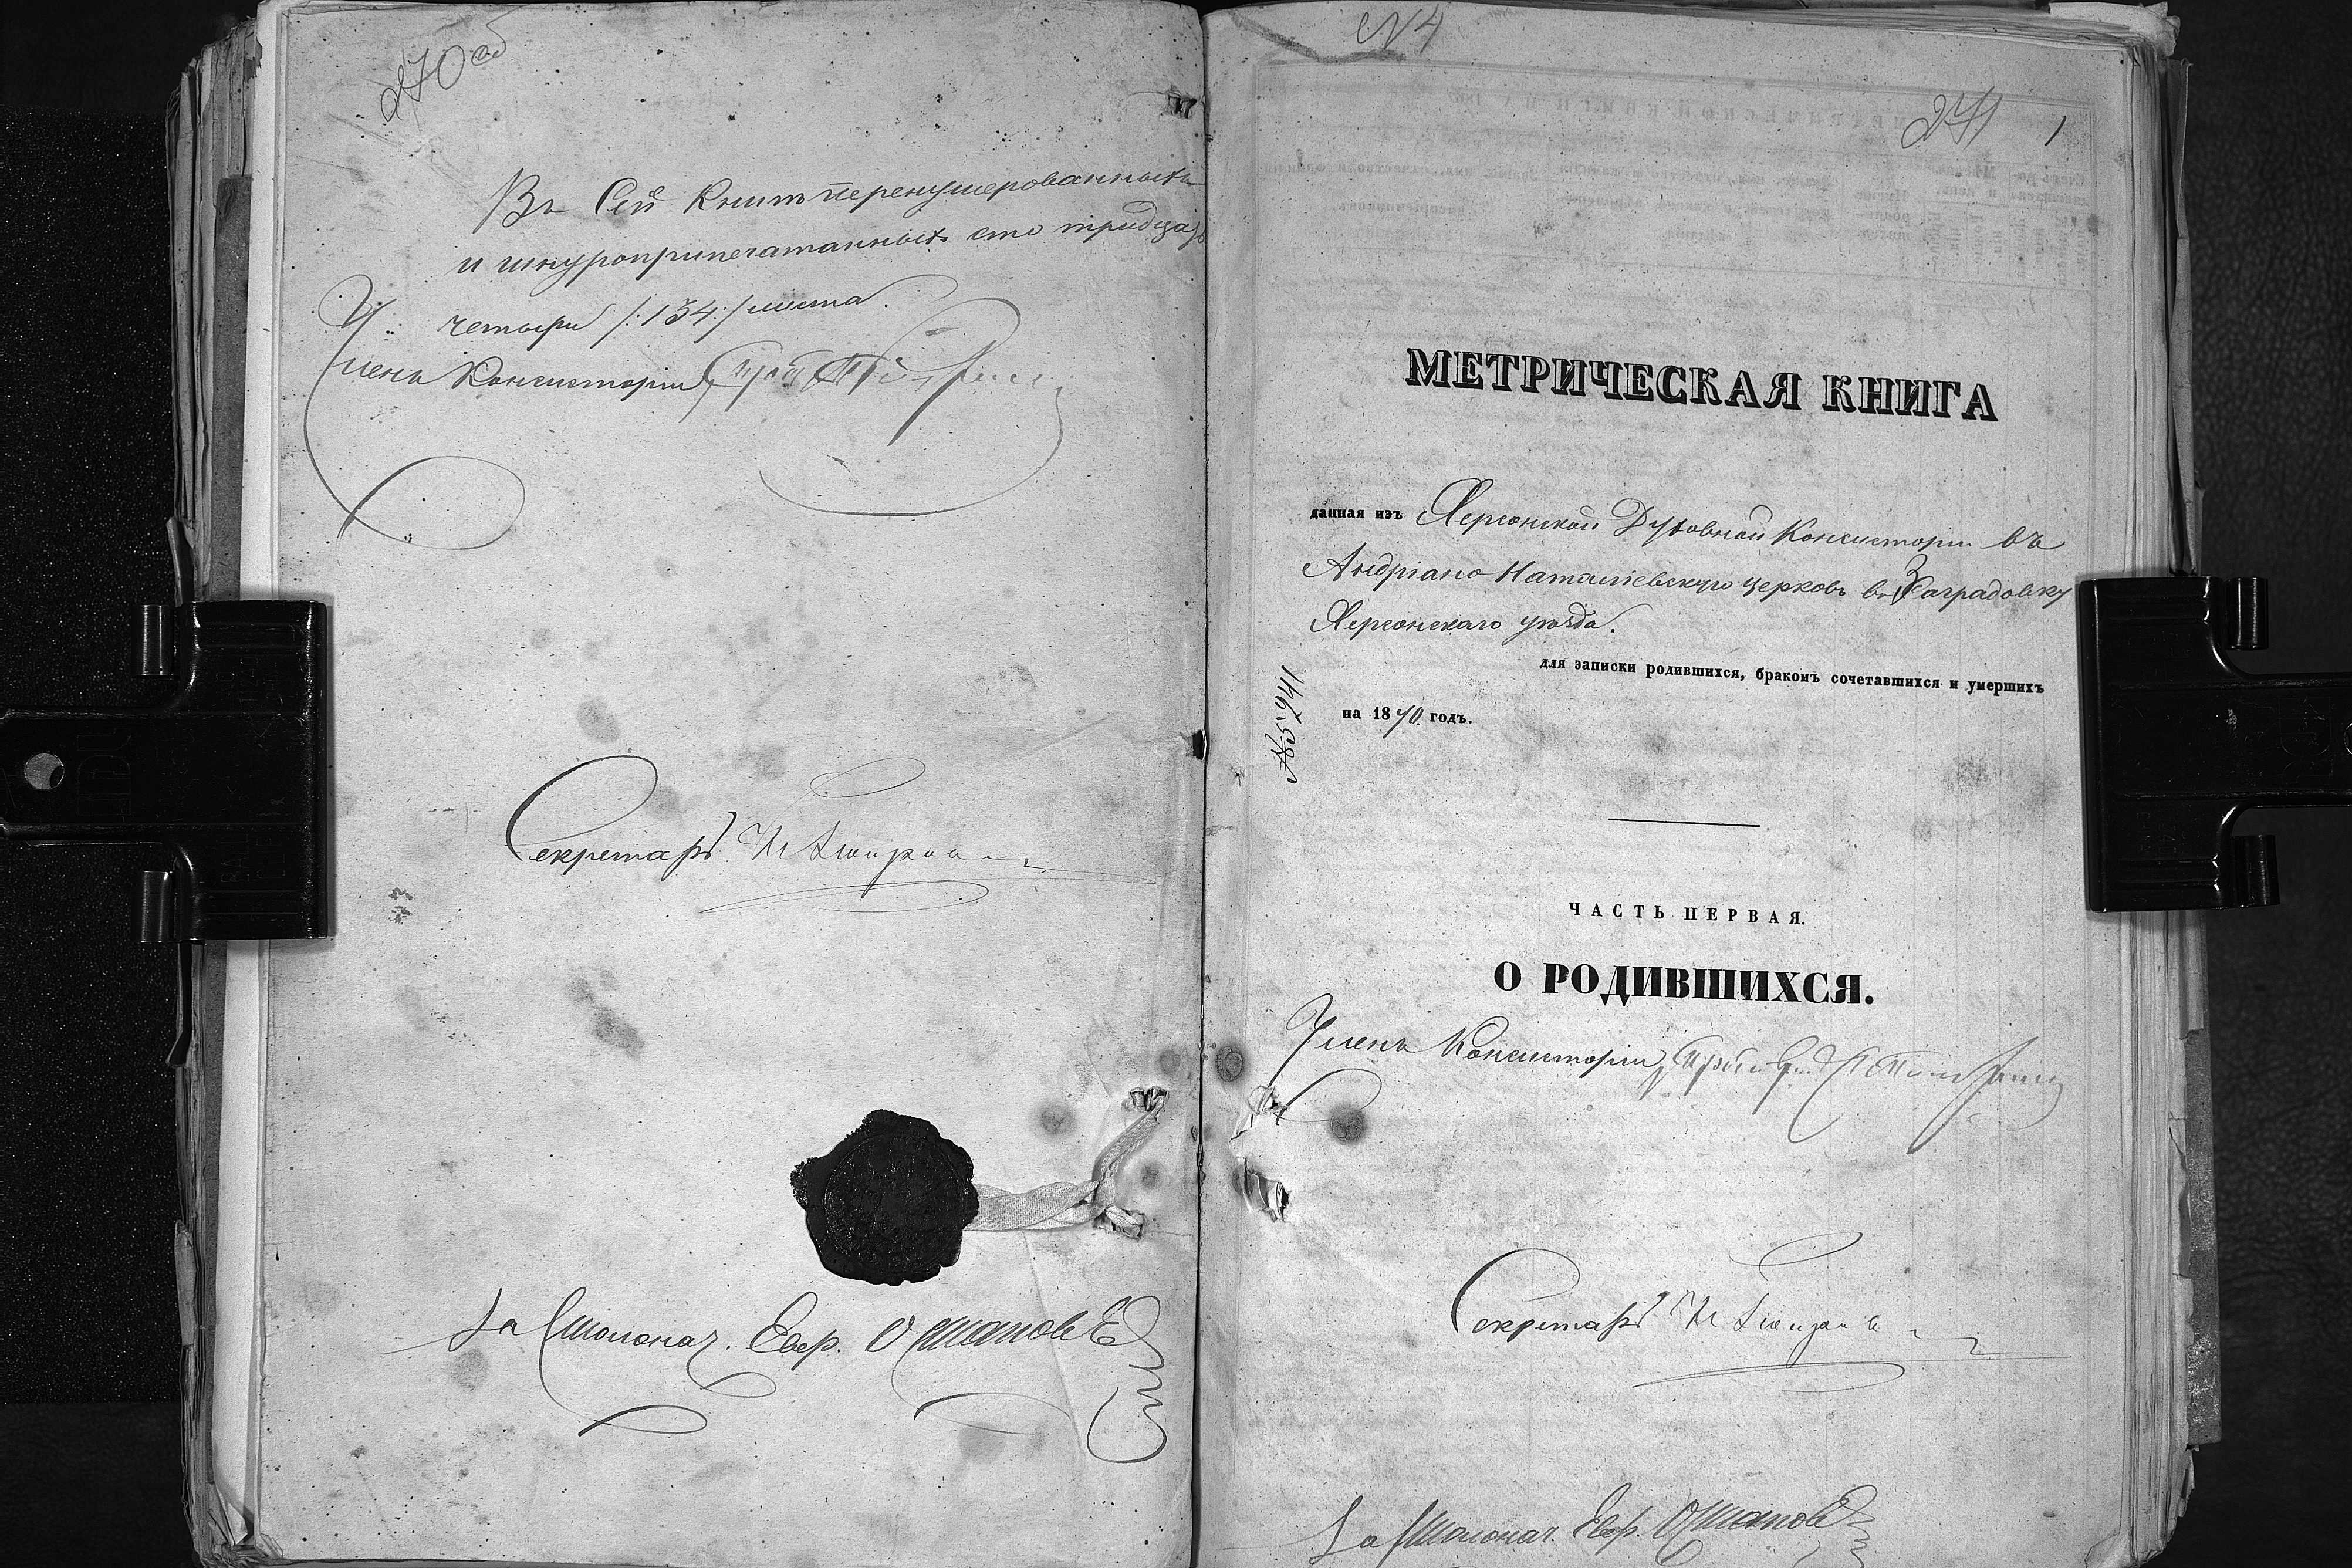 270 об
Въ Сей Книгѣ перенумерованныхъ
и шнуроприпечатанныхъ сто тридцать
четыри /:134:/ листа.
Членъ Консисторіи
Секретарь
За Столонач. Евр.
N4
271 1
МЕТРИЧЕСКАЯ КНИГА
данная изъ Херсонской Духовной Консисторіи въ
Андріано-Наталіевскую церковь въ Заградовку
Херсонскаго уѣзда.
для записки родившихся, бракомъ сочетавшихся и умершихъ
на 1870 годъ.
№5241
ЧАСТЬ ПЕРВАЯ.
О РОДИВШИХСЯ.
Членъ Консисторіи
Секретарь
За Столонач. Евр.